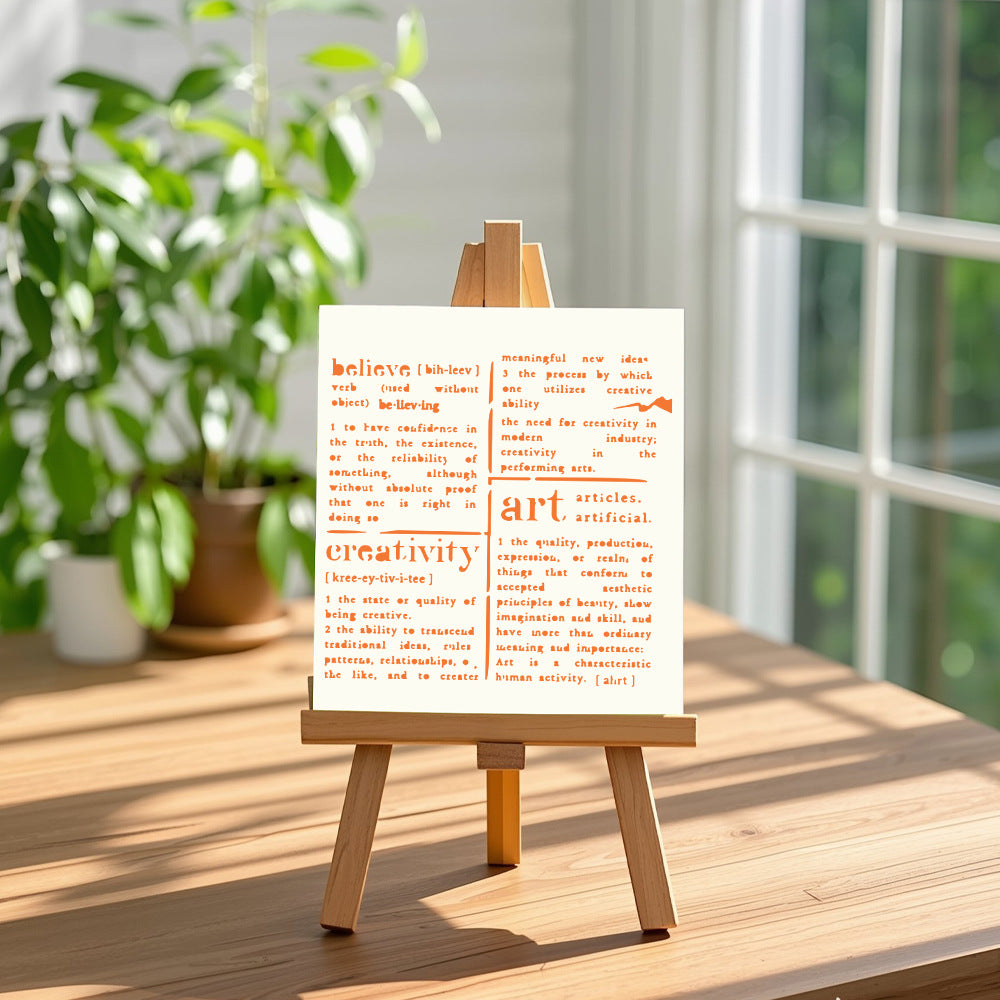 believe [ bih-leev ]
verb (used without
object) be·liev·ing
1 to have confidence in
the truth, the existence,
or the reliability of
something, although
without absolute proof
that one is right in
doing so
creativity
[ kree-ey-tiv-i-tee ]
1 the state or quality of
being creative.
2 the ability to transcend
traditional ideas, rules
patterns, relationships, o ,
the like, and to creater
meaningful new ideas
3 the process by which
one utilizes creative
ability
the need for creativity in
modern industry;
creativity in the
performing arts.
art, articles.
artificial.
1 the quality, production,
expression, or realm, of
things that conform to
accepted aesthetic
principles of beauty, show
imagination and skill, and
have more than ordinary
meaning and importance:
Art is a characteristic
human activity. [ ahrt ]